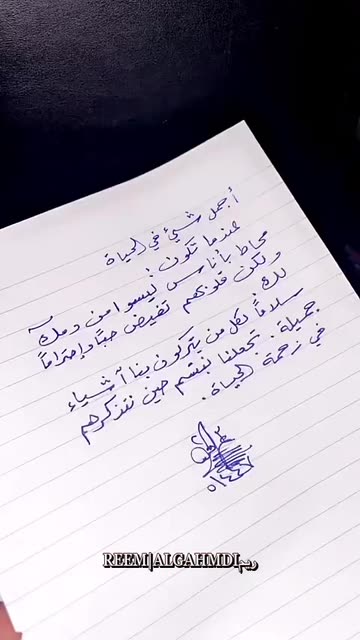 أجمل شيئ في الحياة
عندما تكون :
محاط بأناس ليسوا من دمك
ولكن قلوبهم تفيض حبًا واحترامًا
لك
سلامًا لكل من يتركون بنا أشياء
جميلة . تجعلنا نبتسم حين نتذكرهم
في زحمة الحياة .
REEM|ALGAHMDI|ريم